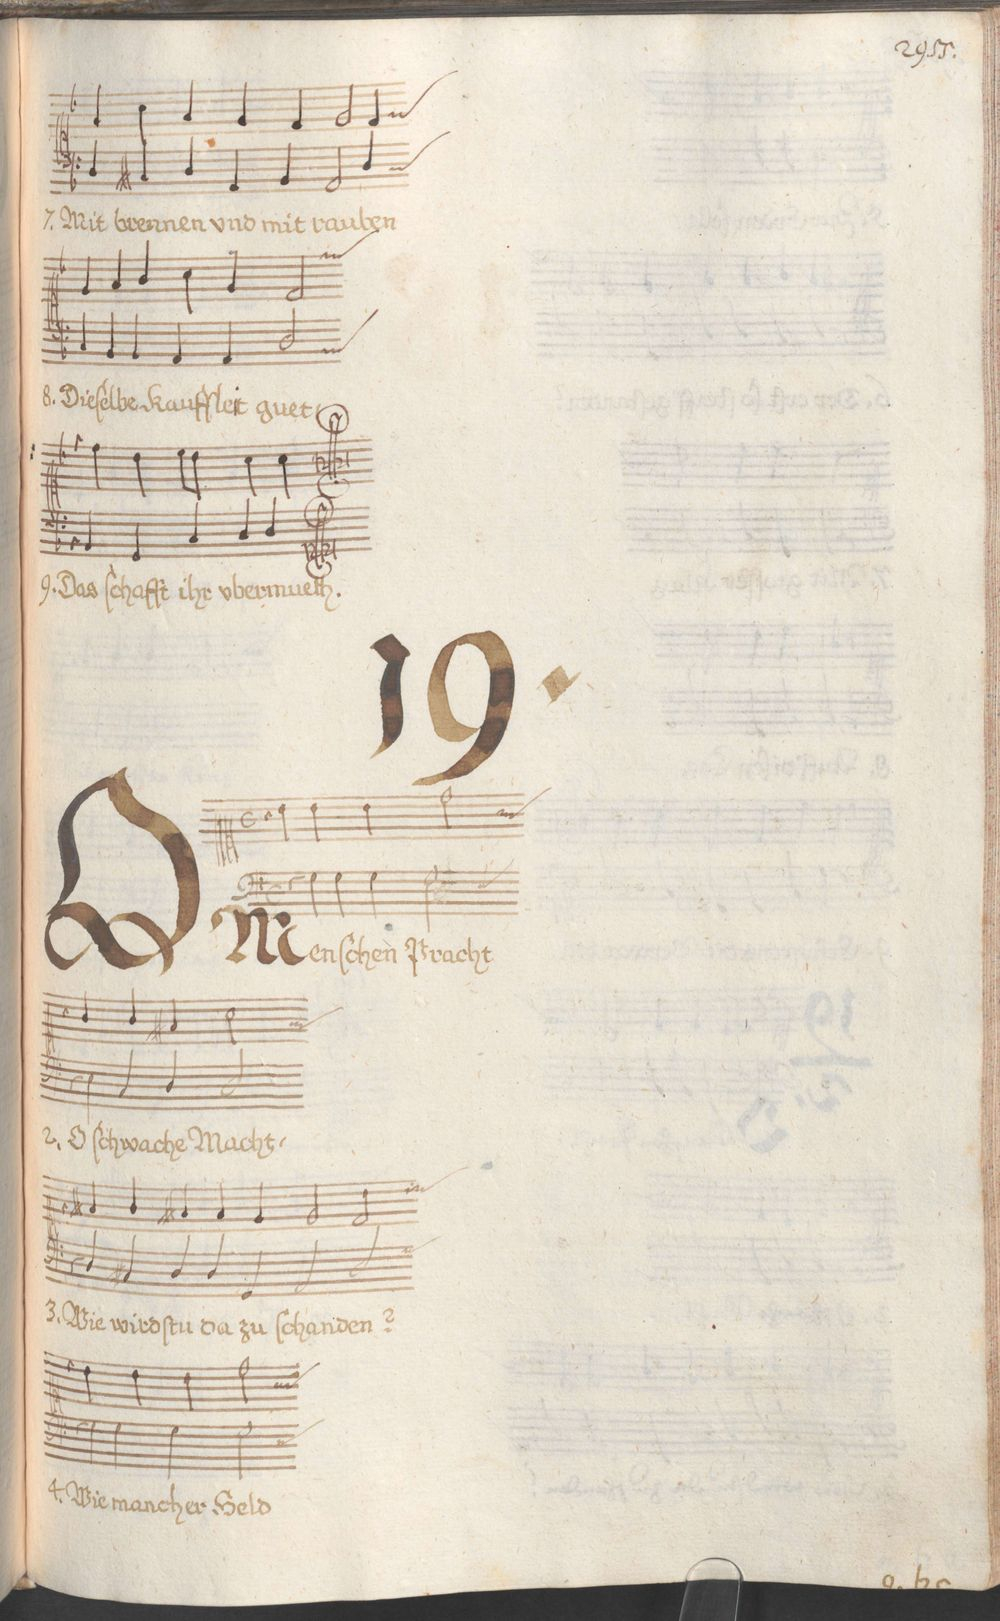 7. Mit brennen vnd mit rauben
8. Dieselbe Kauffleit guet
9. Das schafft ihr vbermueth.
19.
O Menschen Pracht
2. O schwache Macht
3. Wie wirdstu da zu schanden?
4. Wie mancher Held